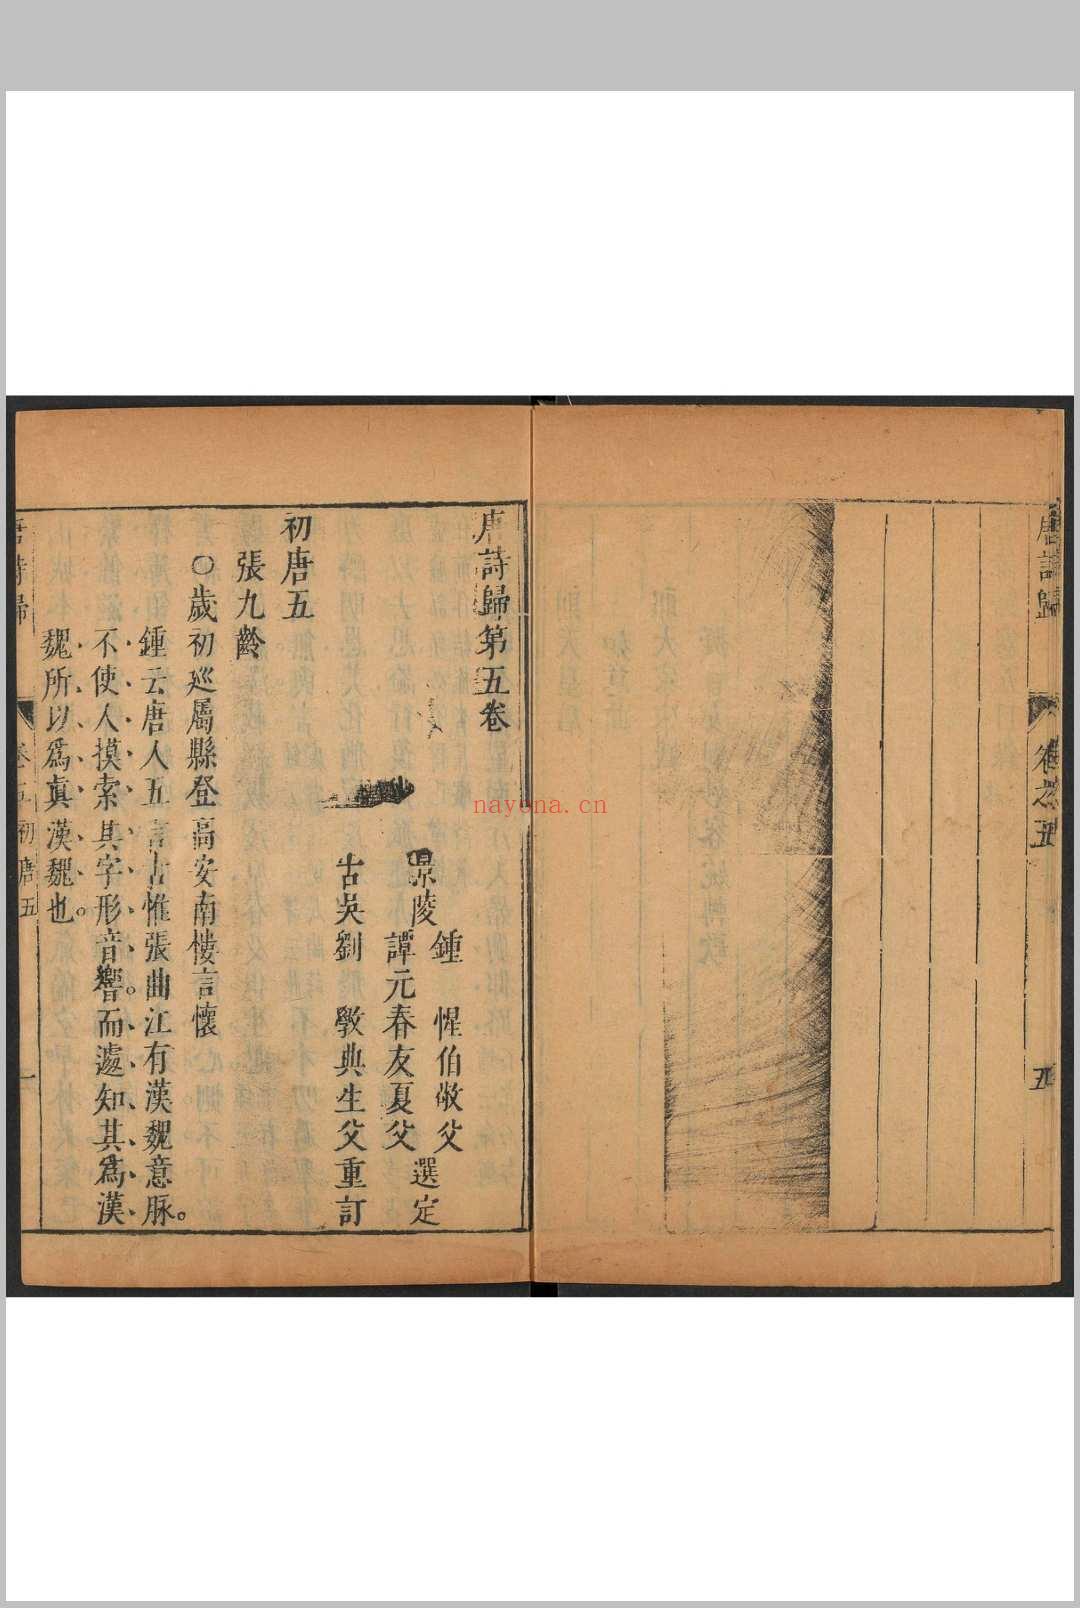 唐詩歸
卷之五
五
唐詩歸第五卷
景陵
鍾惺伯敬父
譚元春友夏父
選定
古吳劉斆典生父重訂
初唐五
張九齡
○歲初巡屬縣登高安南樓言懷
鍾云唐人五言古惟張曲江有漢魏意脉。
不使人摸索其字形音響。而遽知其為漢
魏所以爲眞漢魏也。
唐詩歸
卷五初唐五
一
nayona.cn